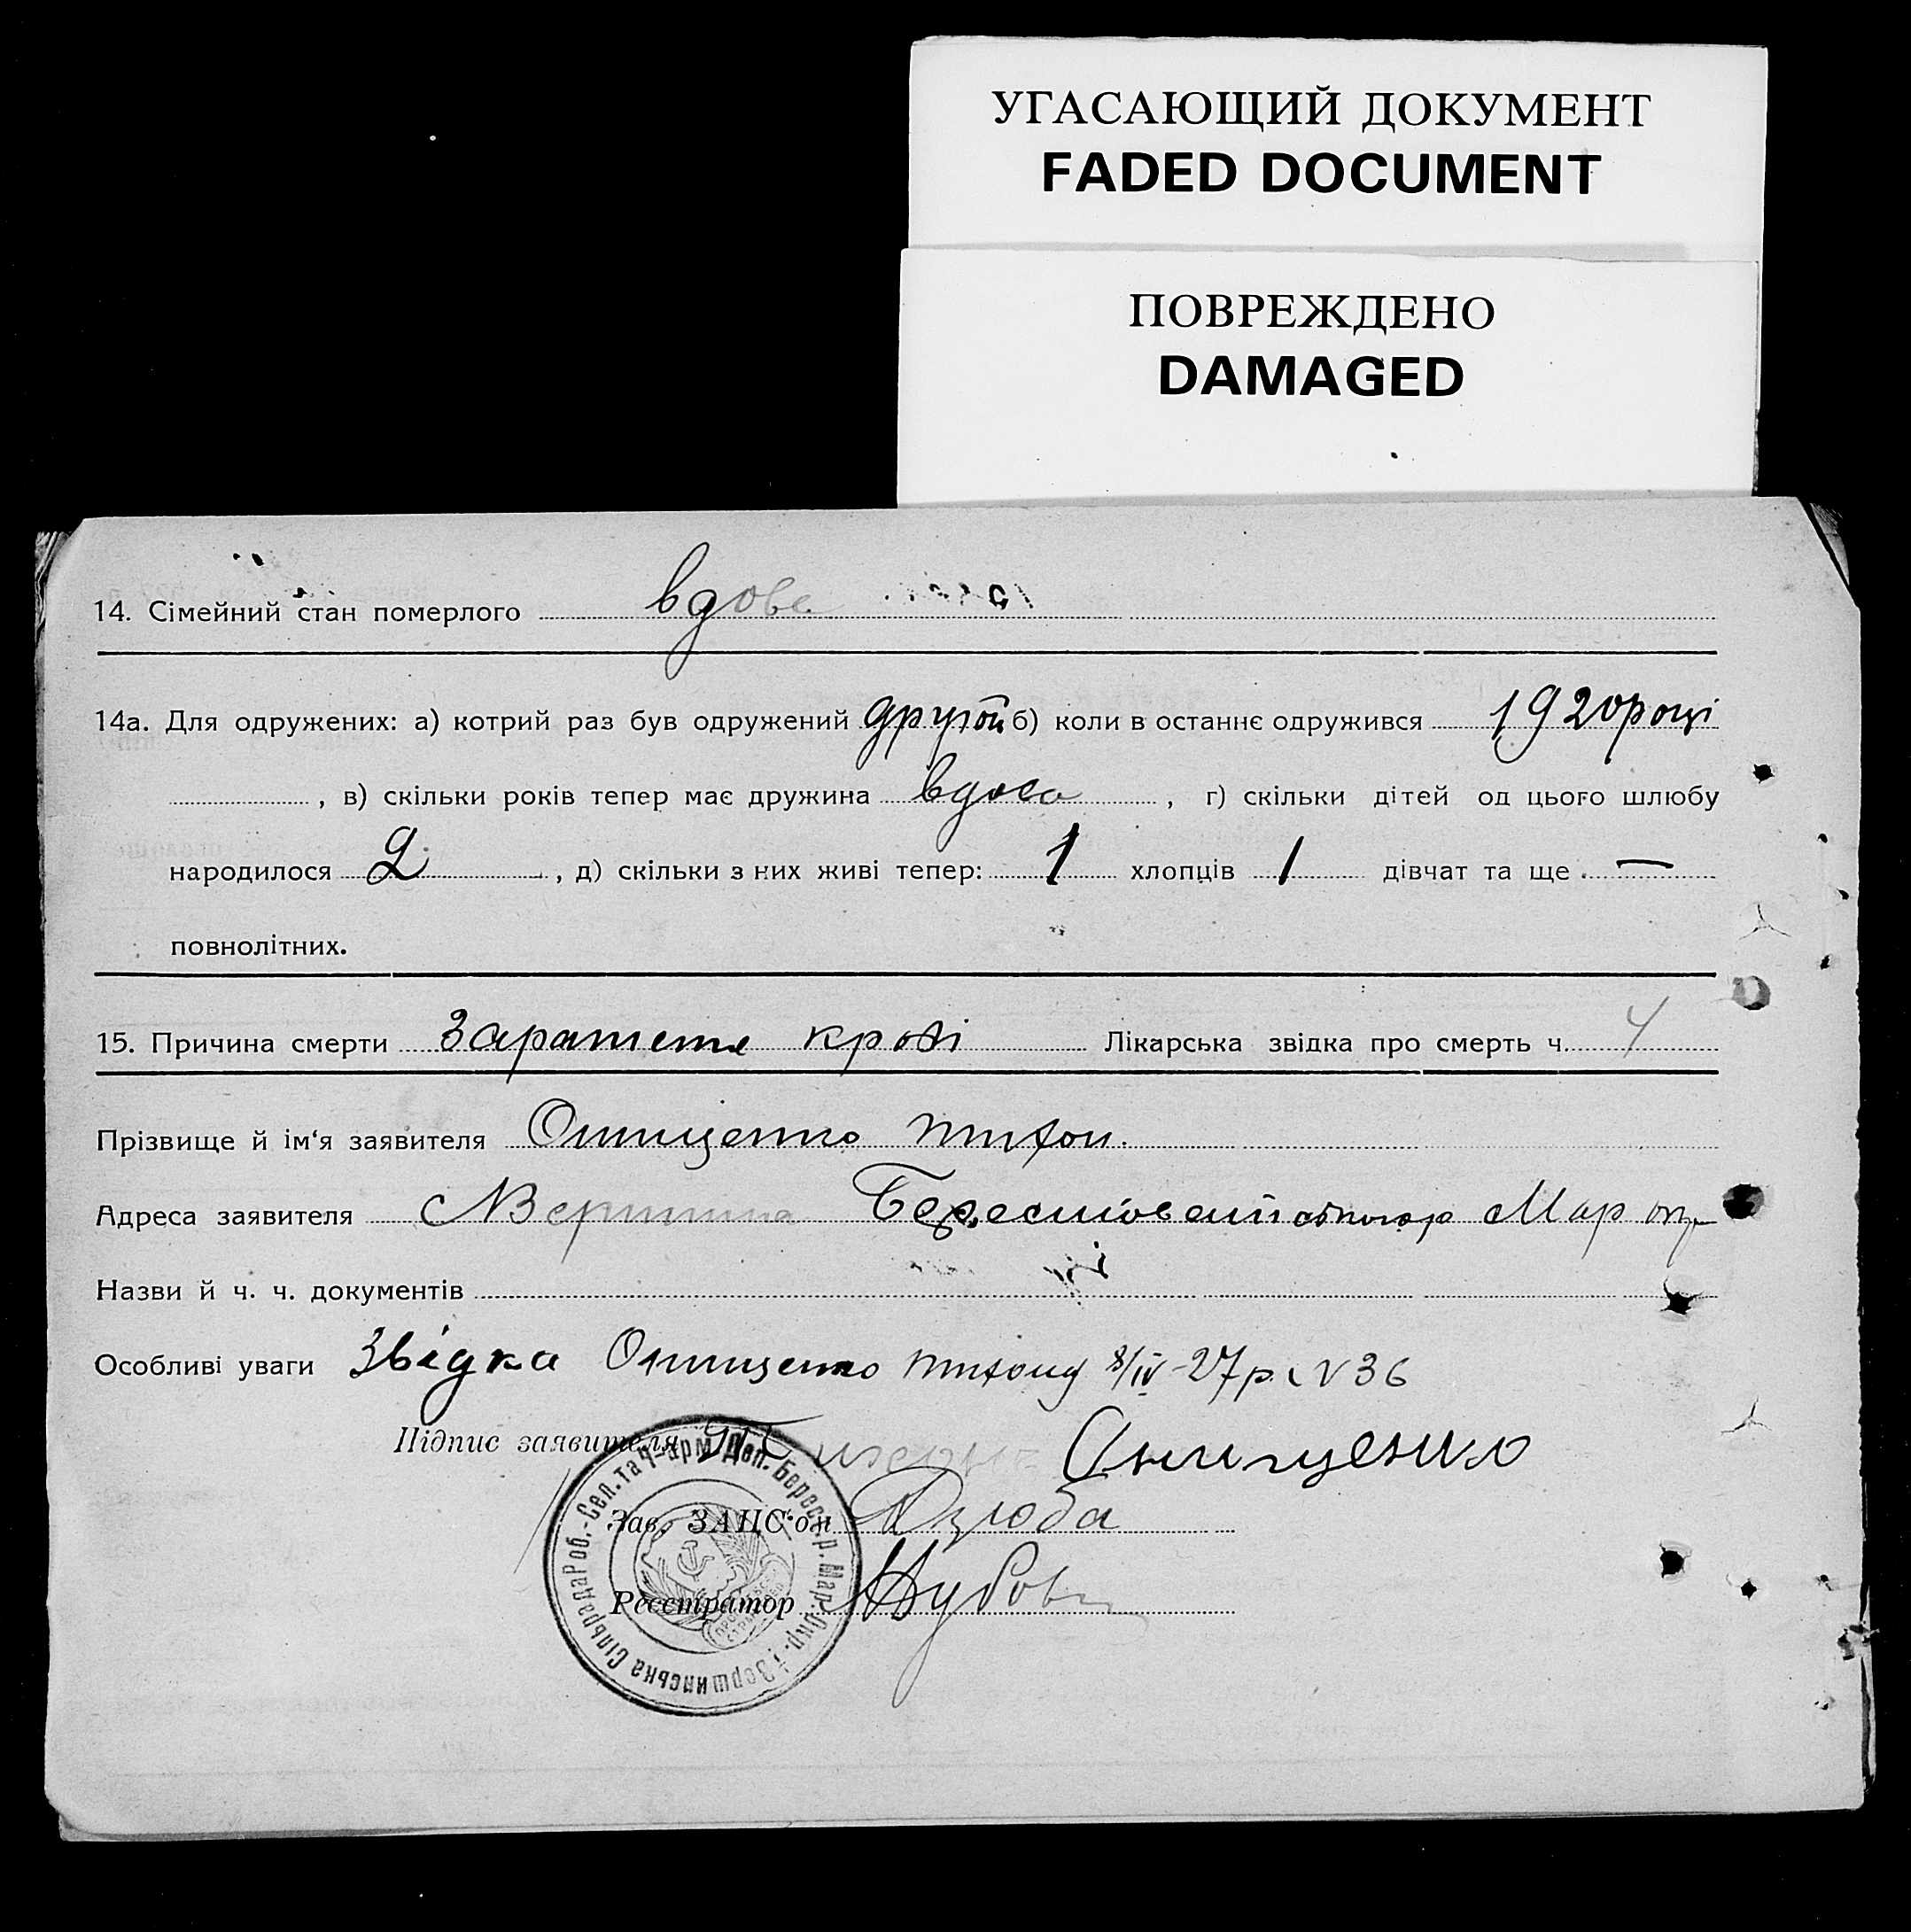 УГАСАЮЩИЙ ДОКУМЕНТ
FADED DOCUMENT
ПОВРЕЖДЕНО
DAMAGED
14. Сімейний стан померлого вдова
14а. Для одружених: а) котрий раз був одружений другой б) коли в останнє одружився 1920 році
, в) скільки років тепер має дружина вдова , г) скільки дітей од цього шлюбу
народилося 2 , д) скільки з них живі тепер: 1 хлопців 1 дівчат та ще —
повнолітних.
15. Причина смерти Заражение крові Лікарська звідка про смерть ч. 4
Прізвище й ім‘я заявителя Онищенко Тихон.
Адреса заявителя Вершина Берестовский Мар окр
Назви й ч. ч. документів
Особливі уваги Звідка Онищенко Тихону 8/IV-27р. N 36
Підпис заявителя Тихон Онищенко
Зав. ЗАЦС‘ом Дзюба
Реєстратор
Вершинська СільРада Роб.-Сел. та Ч-Арм. Деп. Берест. р. Мар. Окр.